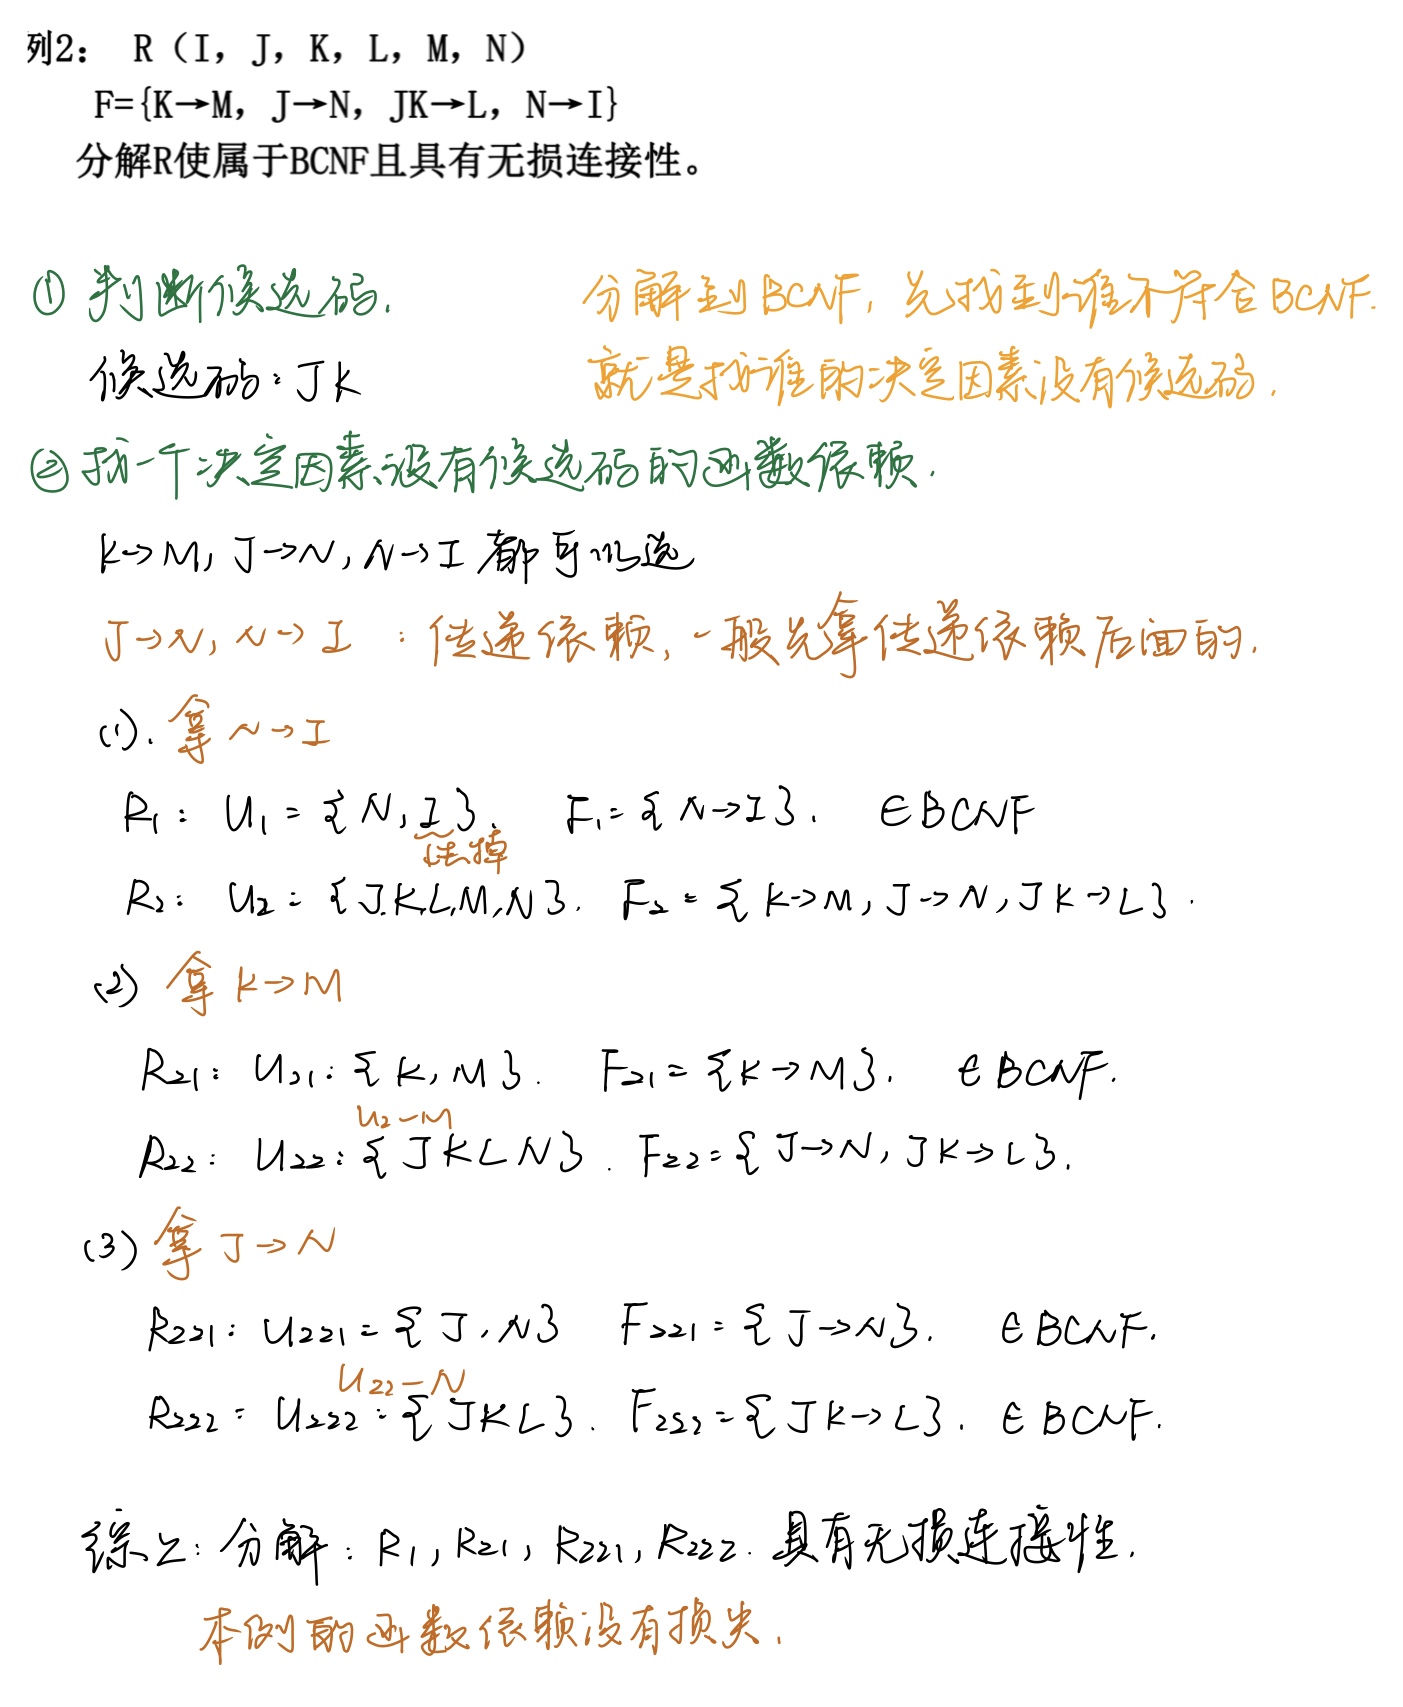 列2： R（I，J，K，L，M，N）
F={K→M，J→N，JK→L，N→I}
分解R使属于BCNF且具有无损连接性。
① 判断候选码.
分解到BCNF, 先找到谁不符合BCNF.
候选码：JK
就是找谁的决定因素没有候选码.
② 找一个决定因素没有候选码的函数依赖.
K→M, J→N, N→I 都可以选
J→N, N→I ：传递依赖, 一般先拿传递依赖后面的.
(1). 拿 N→I
R1： U1 = {N, I}. F1 = {N→I}. ∈BCNF
去掉
R2： U2 = {J.K,L,M,N}. F2 = {K→M, J→N, JK→L}.
(2) 拿 K→M
R21： U21：{K, M}. F21 = {K→M}. ∈BCNF.
U2-M
R22： U22：{JKLN}. F22 = {J→N, JK→L}.
(3) 拿 J→N
R221： U221 = {J, N} F221 = {J→N}. ∈BCNF.
U22-N
R222： U222：{JKL}. F222 = {JK→L}. ∈BCNF.
综上：分解：R1, R21, R221, R222. 具有无损连接性.
本例的函数依赖没有损失.